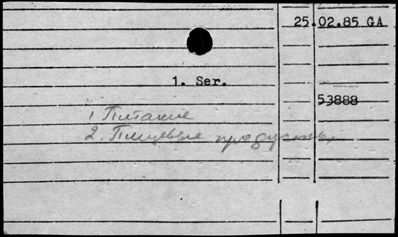 25.02.85 GA
1. Ser.
53888
1 Питание
2. Пищевые продукты